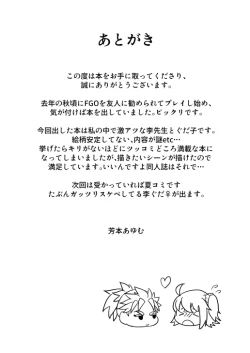 あとがき
この度は本をお手に取ってくださり、
誠にありがとうございます。
去年の秋頃にFGOを友人に勧められてプレイし始め、
気が付けば本を出していました。ビックリです。
今回出した本は私の中で激アツな李先生とぐだ子です。
絵柄安定してない、内容が謎etc…
挙げたらキリがないほどにツッコミどころ満載な本に
なってしまいましたが、描きたいシーンが描けたので
満足しています。いいんですよ同人誌はそれで…
次回は受かっていれば夏コミです
たぶんガッツリスケベしてる李ぐだ♀が出ます。
芳本あゆむ